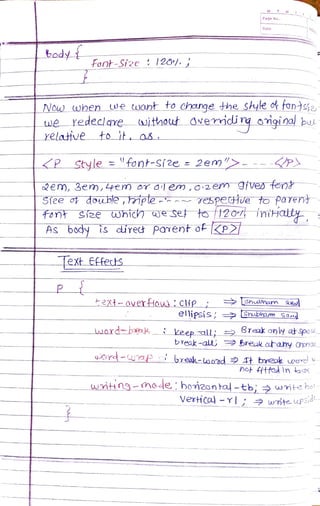 Page No.
Date
body {
Font-Size : 120% ;
}
Now when we want to change the style of fontsize
we redeclare without overriding original but
relative to it. as.
<P style = "font-size = 2em">- - - - </P>
2em, 3em, 4em or 0.1em, 0.2em gives font
size of double, triple - - - - respective to parent
font size which we set to 120% initially.
As body is direct parent of <P>
Text Effects
P {
text-overflow : clip ; ⇒
ellipsis ; ⇒
word-break : keep-all ; ⇒ Break only at
break-all ; ⇒ Break at any
word-wrap : break-word ⇒ It break word
not fitted in box
writing-mode : horizontal-tb ; ⇒ write
vertical-rl ; ⇒ write
}